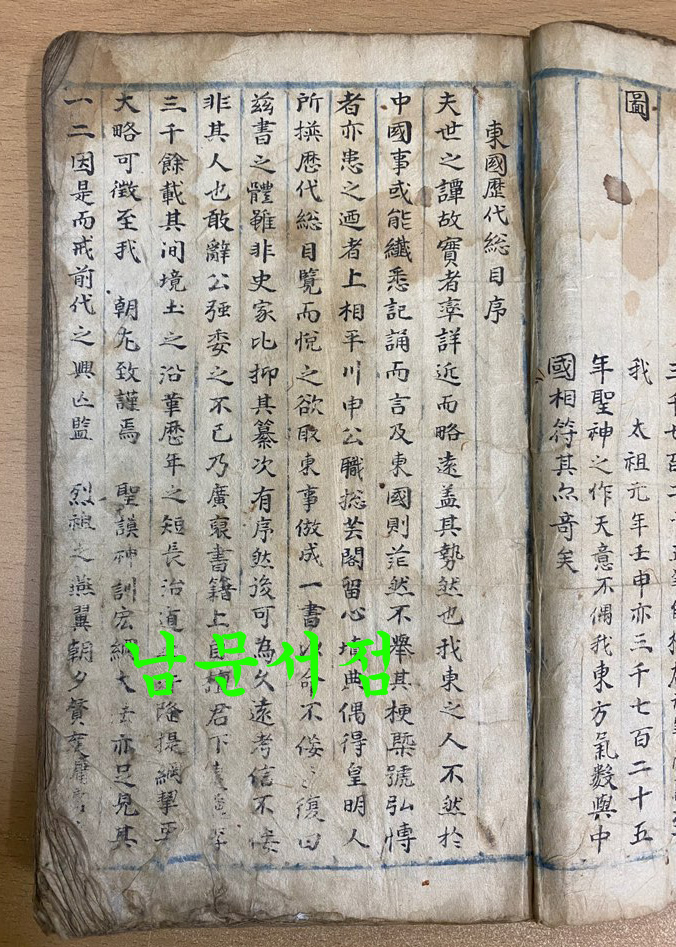 圖
三千七百二十五
我 太祖元年壬申亦三千七百二十五
年聖神之作天意不偶我東方氣數與中
國相符其亦奇矣
東國歷代総目序
夫世之譚故實者率詳近而略遠盖其勢然也我東之人不然於
中國事或能纖悉記誦而言及東國則茫然不擧其梗槩號弘博
者亦患之廼者上相平川申公職摠芸閣留心墳典偶得皇明人
所撰歷代総目覽而悅之欲取東事倣成一書 命不佞 復曰
茲書之體雖非史家比抑其纂次有序然後可為久遠考信不佞
非其人也敢辭公强委之不已乃廣裒書籍上自 君下
三千餘載其间境土之沿革歷年之短長治道 隆提綱挈
大略可徵至我 朝尤致謹焉 聖謨神訓宏綱大 亦足見其
一二因是而戒前代之興亡監 烈祖之燕翼朝夕
남문서점